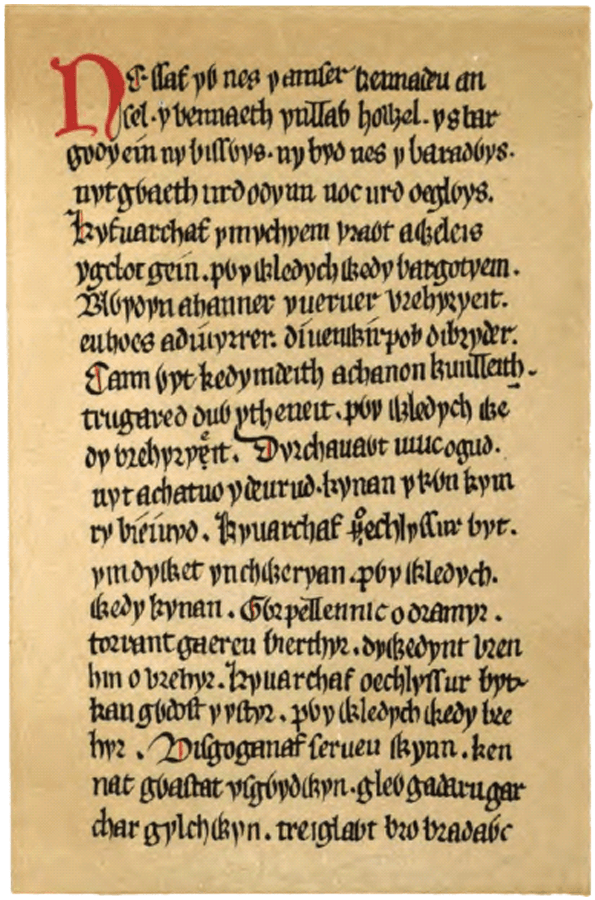 NEssaf yỽ nes y amser kennadeu an
sel. y bennaeth ynllaỽ howel. ys bar
godyein ny bissỽys. ny byd nes y baradỽys.
nyt gỽaeth urd odyun noc urd oeglỽys.
Kyfuarchaf ymychyem yraỽt a weleis
ygclot gein. pỽy wledych wedy bargotyem.
Blỽydyn ahanner yueruer vrehyryeit.
eu hoes adiuyrrer. diuenwir pob dibryder.
Cann ỽyt kedymdeith achanon kunlleith.
trugared duỽ ytheneit. pỽy wledych we
dy vrehyryeit. Dyrchauaỽt un uc ogud.
nyt achatuo ydeurud. kynan y kỽn kym
ry bieiuyd. Kyuarchaf oechlyssur byt.
ymdywet yn chweryan. pỽy wledych.
wedy kynan. Gỽr pellennic o dramyr.
torrant gaereu vierthyr. dywedynt vren
hin o vrehyr. Kyuarchaf oechlyssur byt
kan gỽdost y ystyr. pỽy wledych wedy bre
hyr. Disgoganaf serueu wynn. ken
nat gỽastat ysgỽydwyn. gleỽ gadarn gar
char gylchwyn. treiglaỽt bro bradaỽc